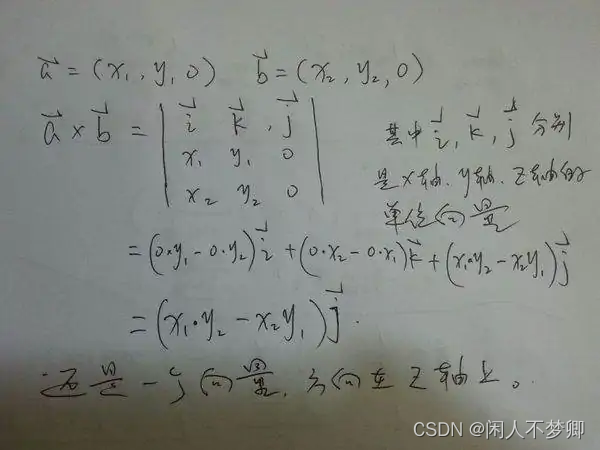 a⃗ = (x₁, y₁, 0)  b⃗ = (x₂, y₂, 0)
a⃗ × b⃗ = | i⃗ k⃗, j⃗ |
| x₁ y₁ 0 |
| x₂ y₂ 0 |
其中 i⃗, k⃗, j⃗ 分别
是x轴、y轴、z轴的
单位向量
= (0·y₁ - 0·y₂) i⃗ + (0·x₂ - 0·x₁) k⃗ + (x₁·y₂ - x₂y₁) j⃗
= (x₁·y₂ - x₂y₁) j⃗.
还是一个向量,方向在z轴上。
CSDN @闲人不梦卿